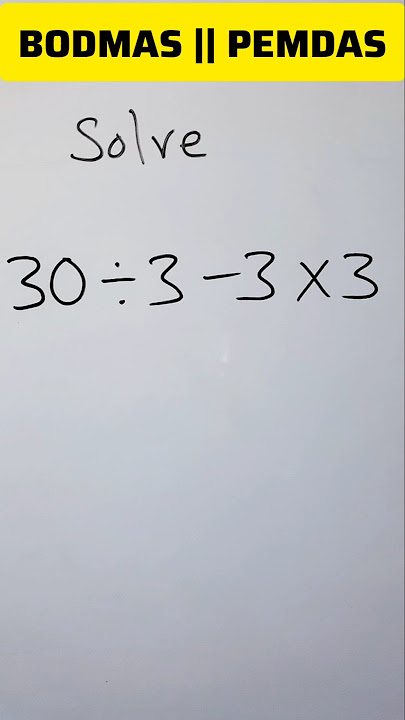 BODMAS || PEMDAS
Solve
30 ÷ 3 - 3 × 3